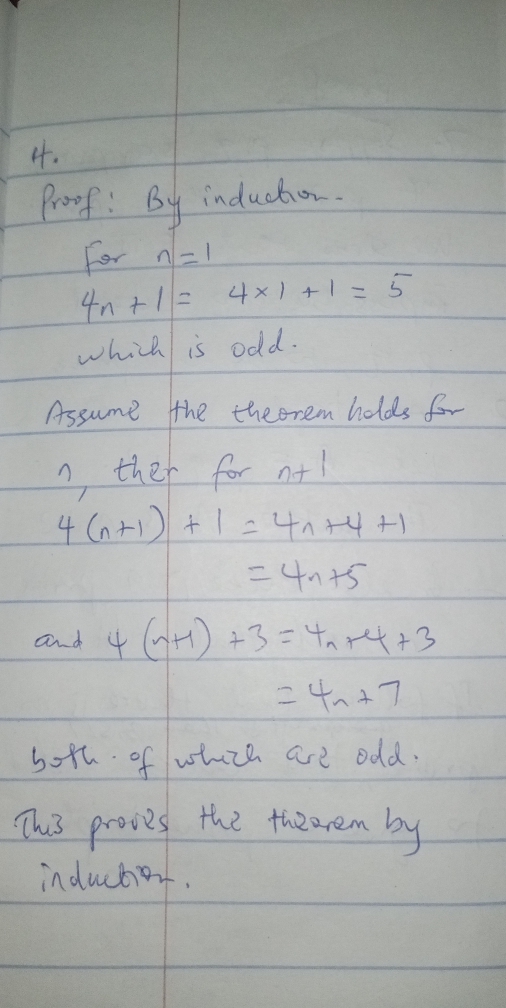 4.
Proof: By induction.
For n=1
4n+1 = 4×1+1 = 5
which is odd.
Assume the theorem holds for
n, then for n+1
4(n+1)+1 = 4n+4+1
= 4n+5
and 4(n+1)+3 = 4n+4+3
= 4n+7
both of which are odd.
This proves the theorem by
induction.